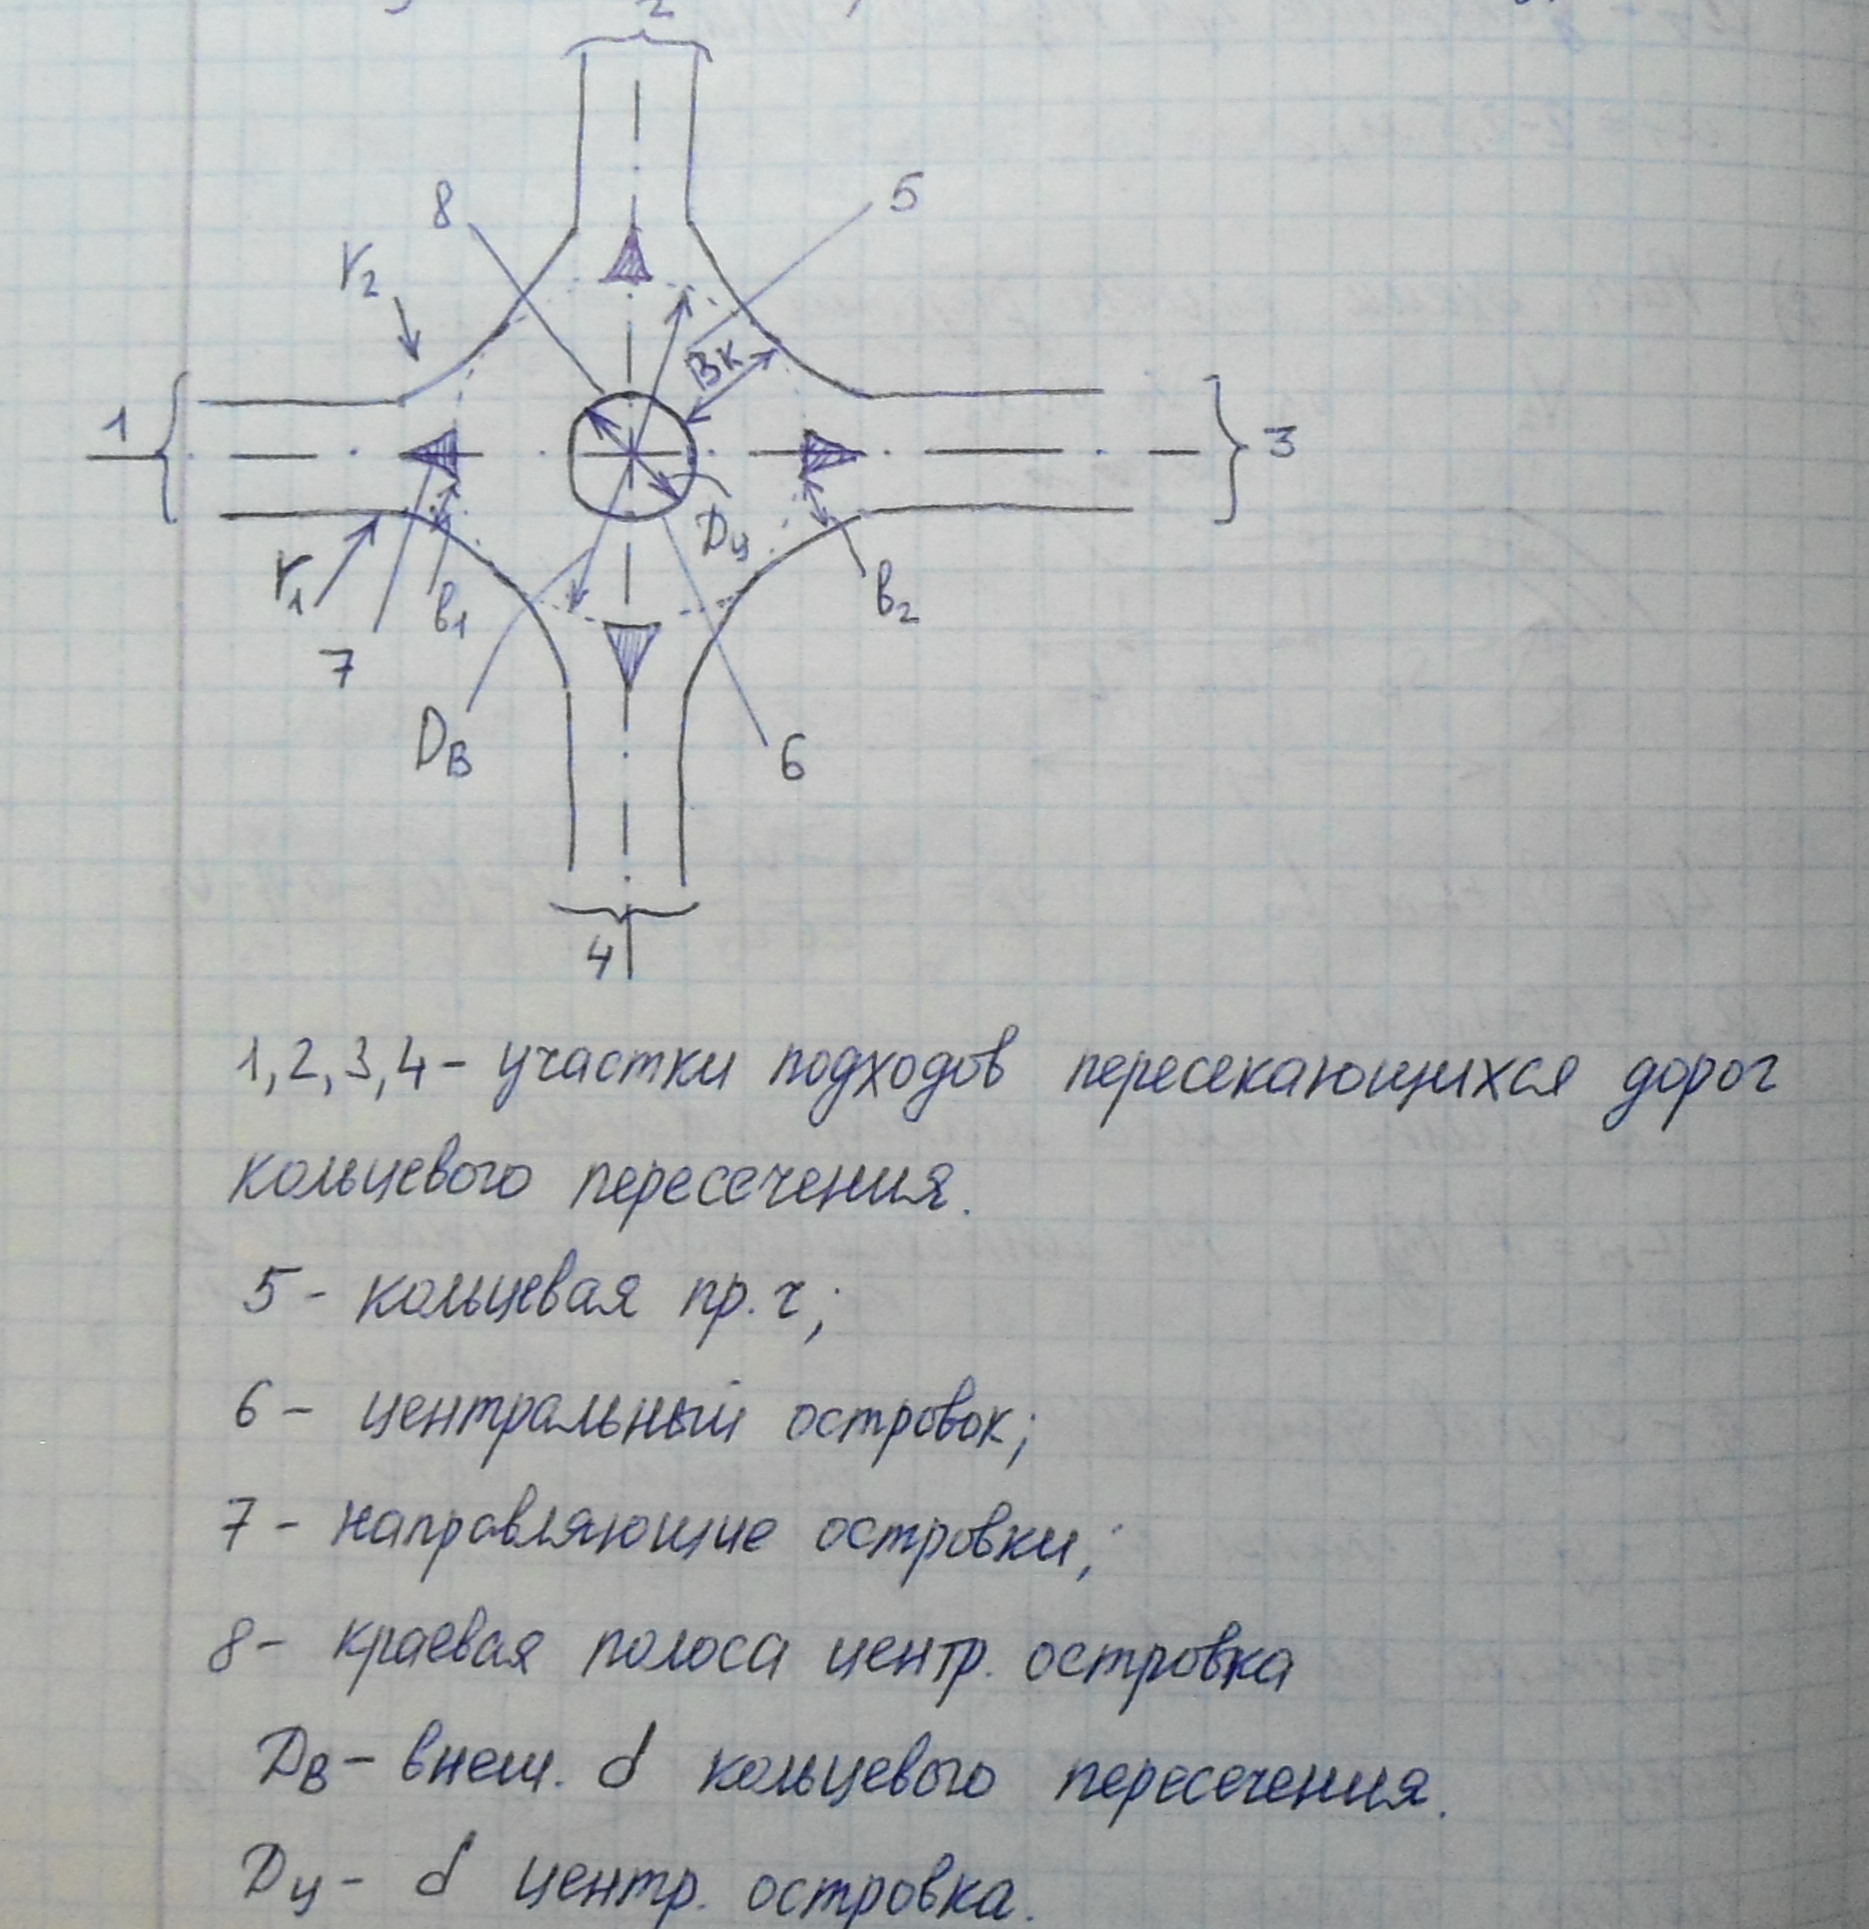 2
8
5
r₂
Bк
1
3
Dц
r₁
в₁
в₂
7
Dв
6
4
1,2,3,4- участки подходов пересекающихся дорог
кольцевого пересечения.
5- кольцевая пр. ч;
6- центральный островок;
7- направляющие островки;
8- краевая полоса центр. островка
Dв- внеш. d кольцевого пересечения.
Dц- d центр. островка.